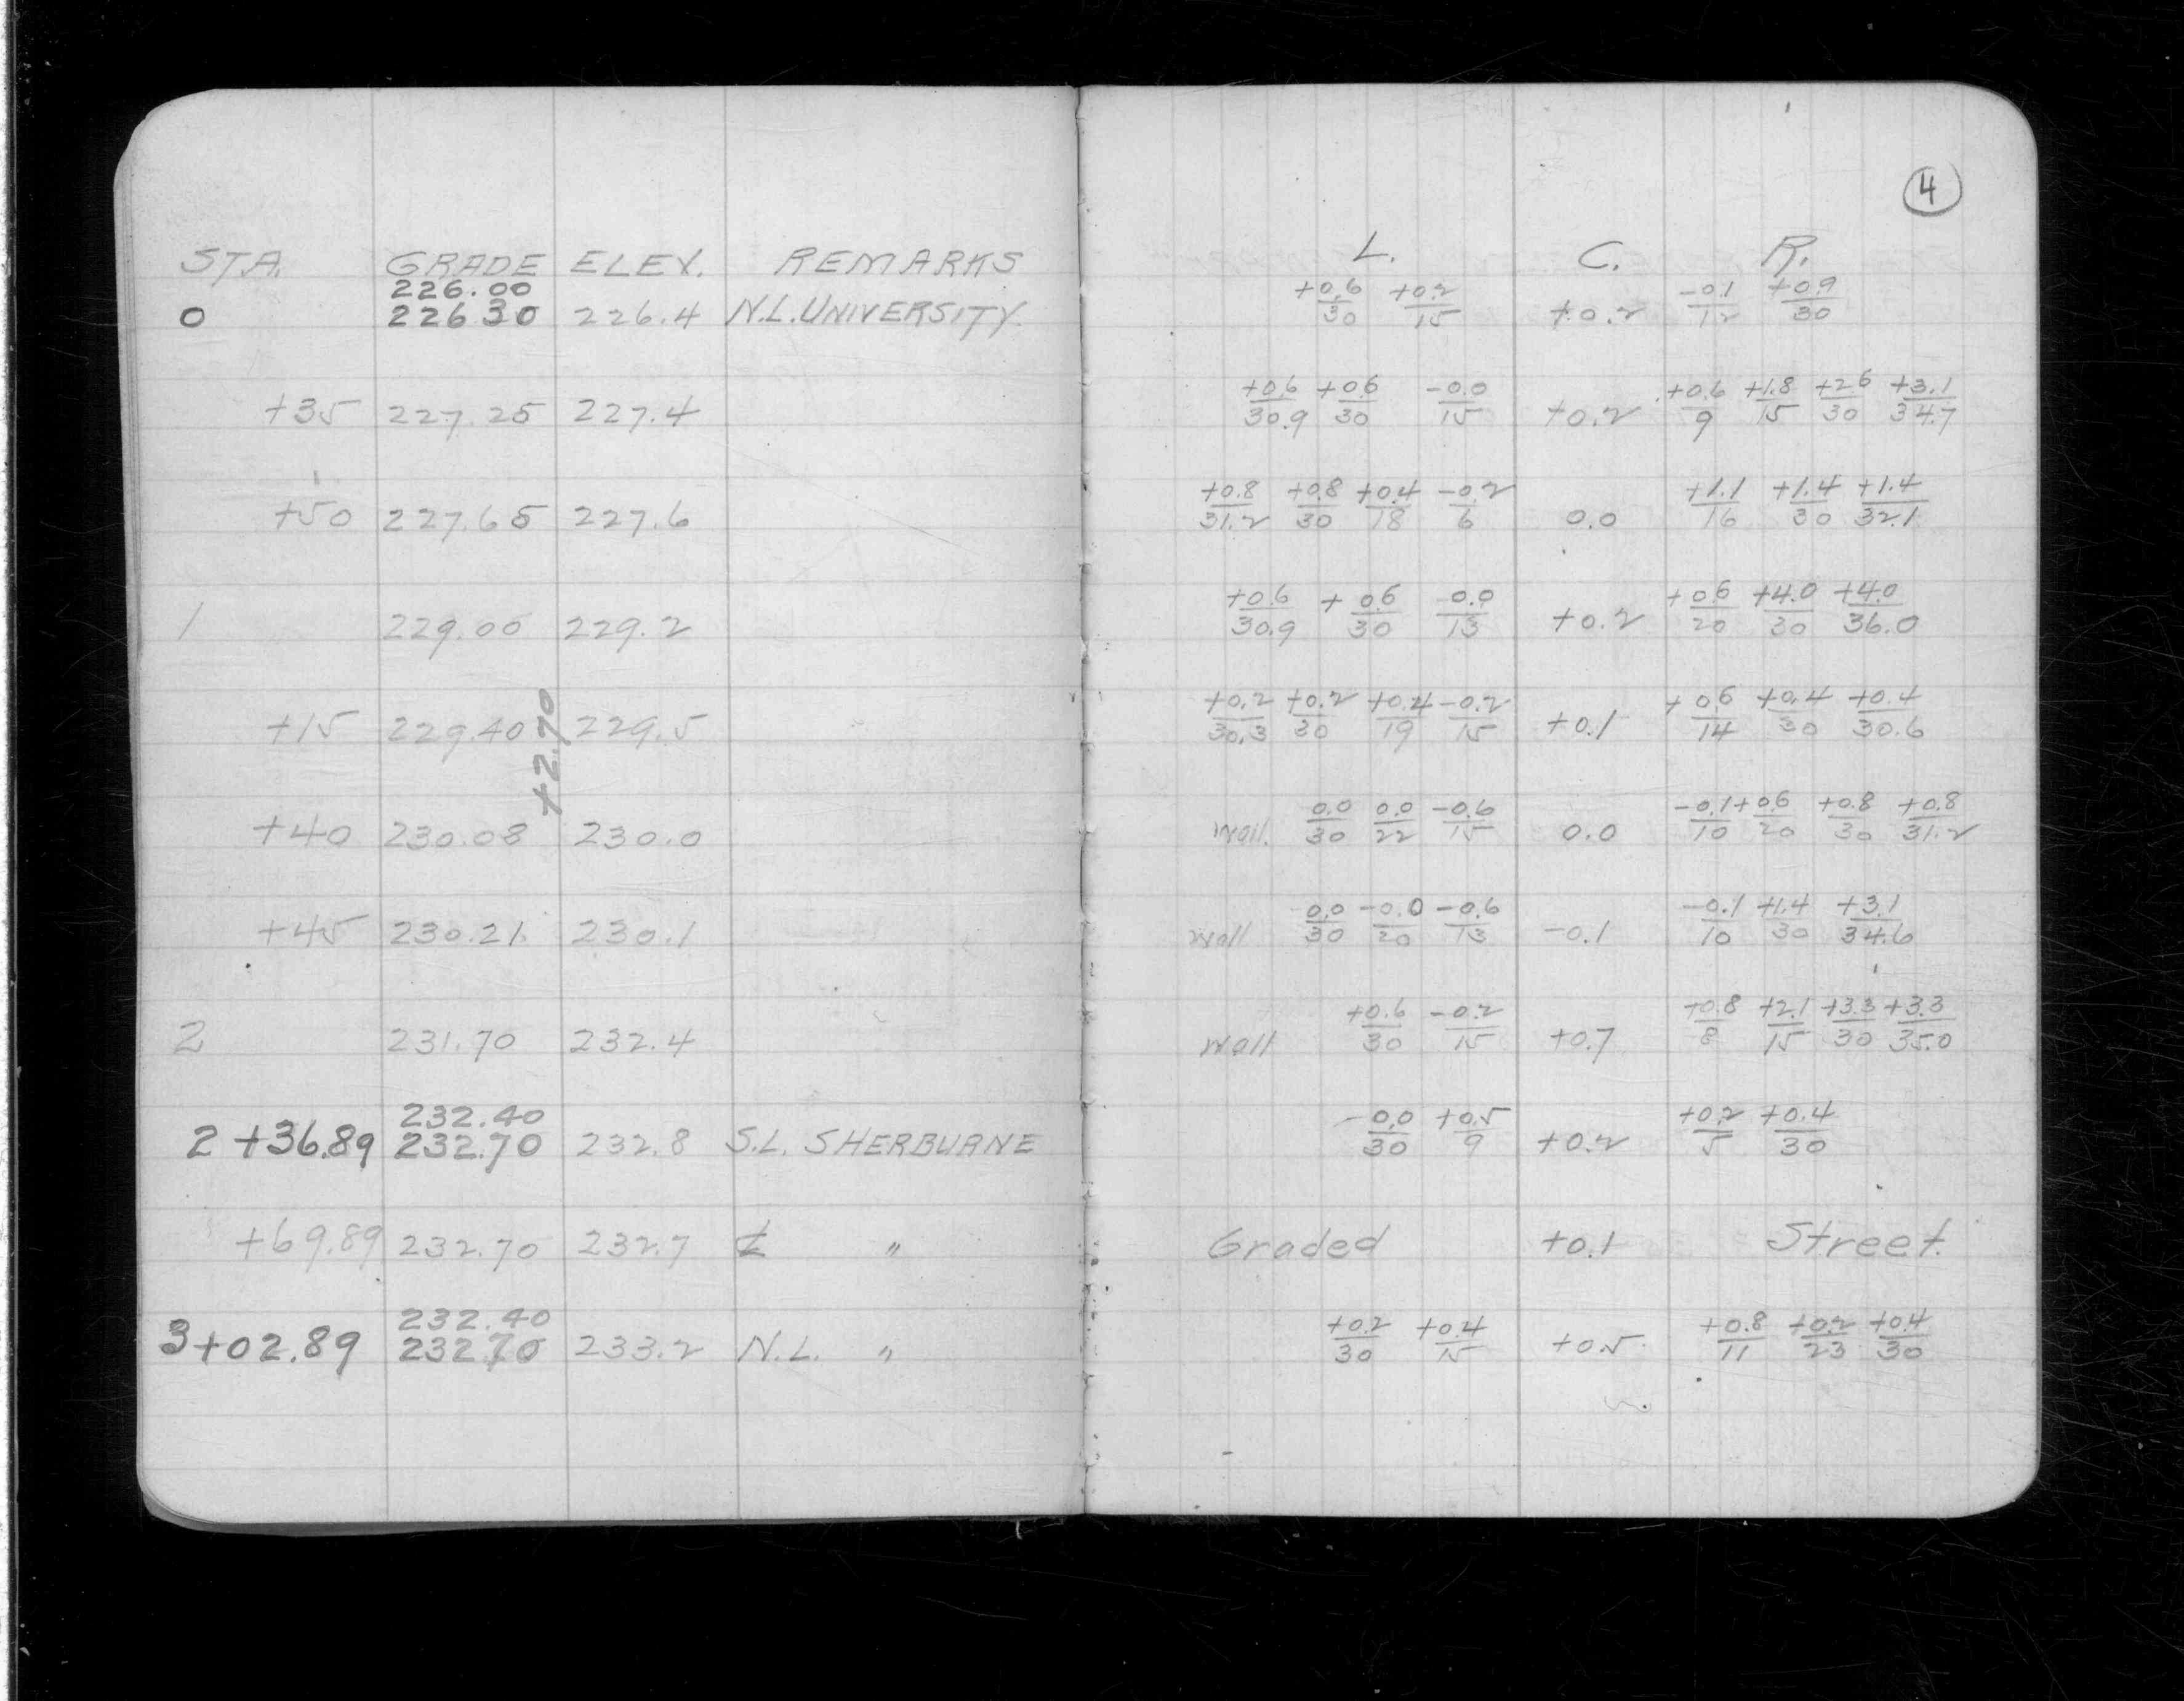 4
STA. GRADE ELEV. REMARKS L. C. R.
226.00
0 226.30 226.4 N.L. UNIVERSITY. +0.6/30 +0.2/15 +0.2 -0.1/12 +0.9/30
+35 227.25 227.4 +0.6/30.9 +0.6/30 -0.0/15 +0.2 +0.6/9 +1.8/15 +2.6/30 +3.1/34.7
+50 227.65 227.6 +0.8/31.2 +0.8/30 +0.4/18 -0.2/6 0.0 +1.1/16 +1.4/30 +1.4/32.1
1 229.00 229.2 +0.6/30.9 +0.6/30 0.0/13 +0.2 +0.6/20 +4.0/30 +4.0/36.0
+15 229.40 229.5 +0.2/30.3 +0.2/30 +0.4/19 -0.2/15 +0.1 +0.6/14 +0.4/30 +0.4/30.6
+2.70
+40 230.08 230.0 Wall. 0.0/30 0.0/22 -0.6/15 0.0 -0.1/10 +0.6/20 +0.8/30 +0.8/31.2
+45 230.21 230.1 Wall 0.0/30 -0.0/20 -0.6/13 -0.1 -0.1/10 +1.4/30 +3.1/34.6
2 231.70 232.4 Wall +0.6/30 -0.2/15 +0.7 +0.8/8 +2.1/15 +3.3/30 +3.3/35.0
232.40
2 +36.89 232.70 232.8 S.L. SHERBURNE -0.0/30 +0.5/9 +0.2 +0.2/5 +0.4/30
+69.89 232.70 232.7 ℄ " Graded +0.1 Street.
232.40
3+02.89 232.70 233.2 N.L. " +0.2/30 +0.4/15 +0.5 +0.8/11 +0.2/23 +0.4/30